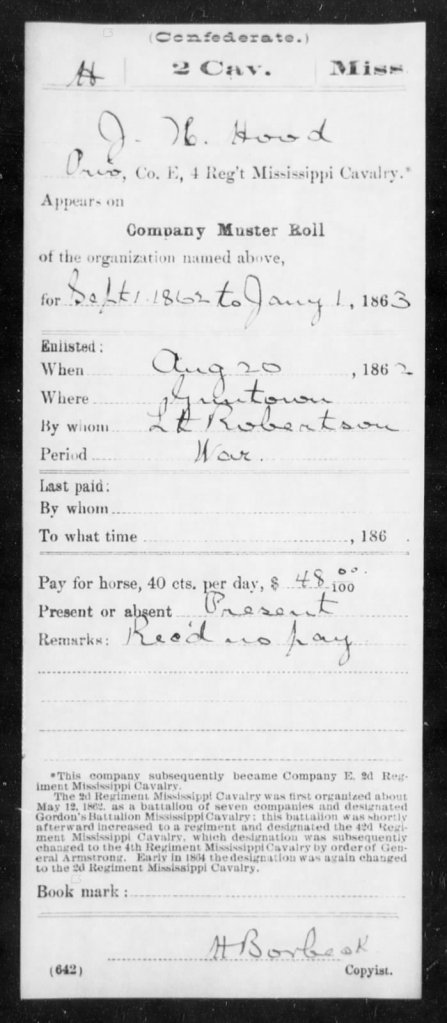 (Confederate.)
H 2 Cav. Miss
J. H. Hood
Priv, Co. E, 4 Reg't Mississippi Cavalry.*
Appears on
Company Muster Roll
of the organization named above,
for Sept 1 1862 to Jany 1, 1863
Enlisted:
When Aug 20, 1862
Where Guntown
By whom Lt Robertson
Period War.
Last paid:
By whom
To what time , 186 .
Pay for horse, 40 cts. per day, $ 48 00/100
Present or absent Present
Remarks: Rec'd no pay
*This company subsequently became Company E, 2d Reg-
iment Mississippi Cavalry.
The 2d Regiment Mississippi Cavalry was first organized about
May 12, 1862, as a battalion of seven companies and designated
Gordon's Battalion Mississippi Cavalry; this battalion was shortly
afterward increased to a regiment and designated the 42d Regi-
ment Mississippi Cavalry, which designation was subsequently
changed to the 4th Regiment Mississippi Cavalry by order of Gen-
eral Armstrong. Early in 1864 the designation was again changed
to the 2d Regiment Mississippi Cavalry.
Book mark:
H Borbeck
(642) Copyist.